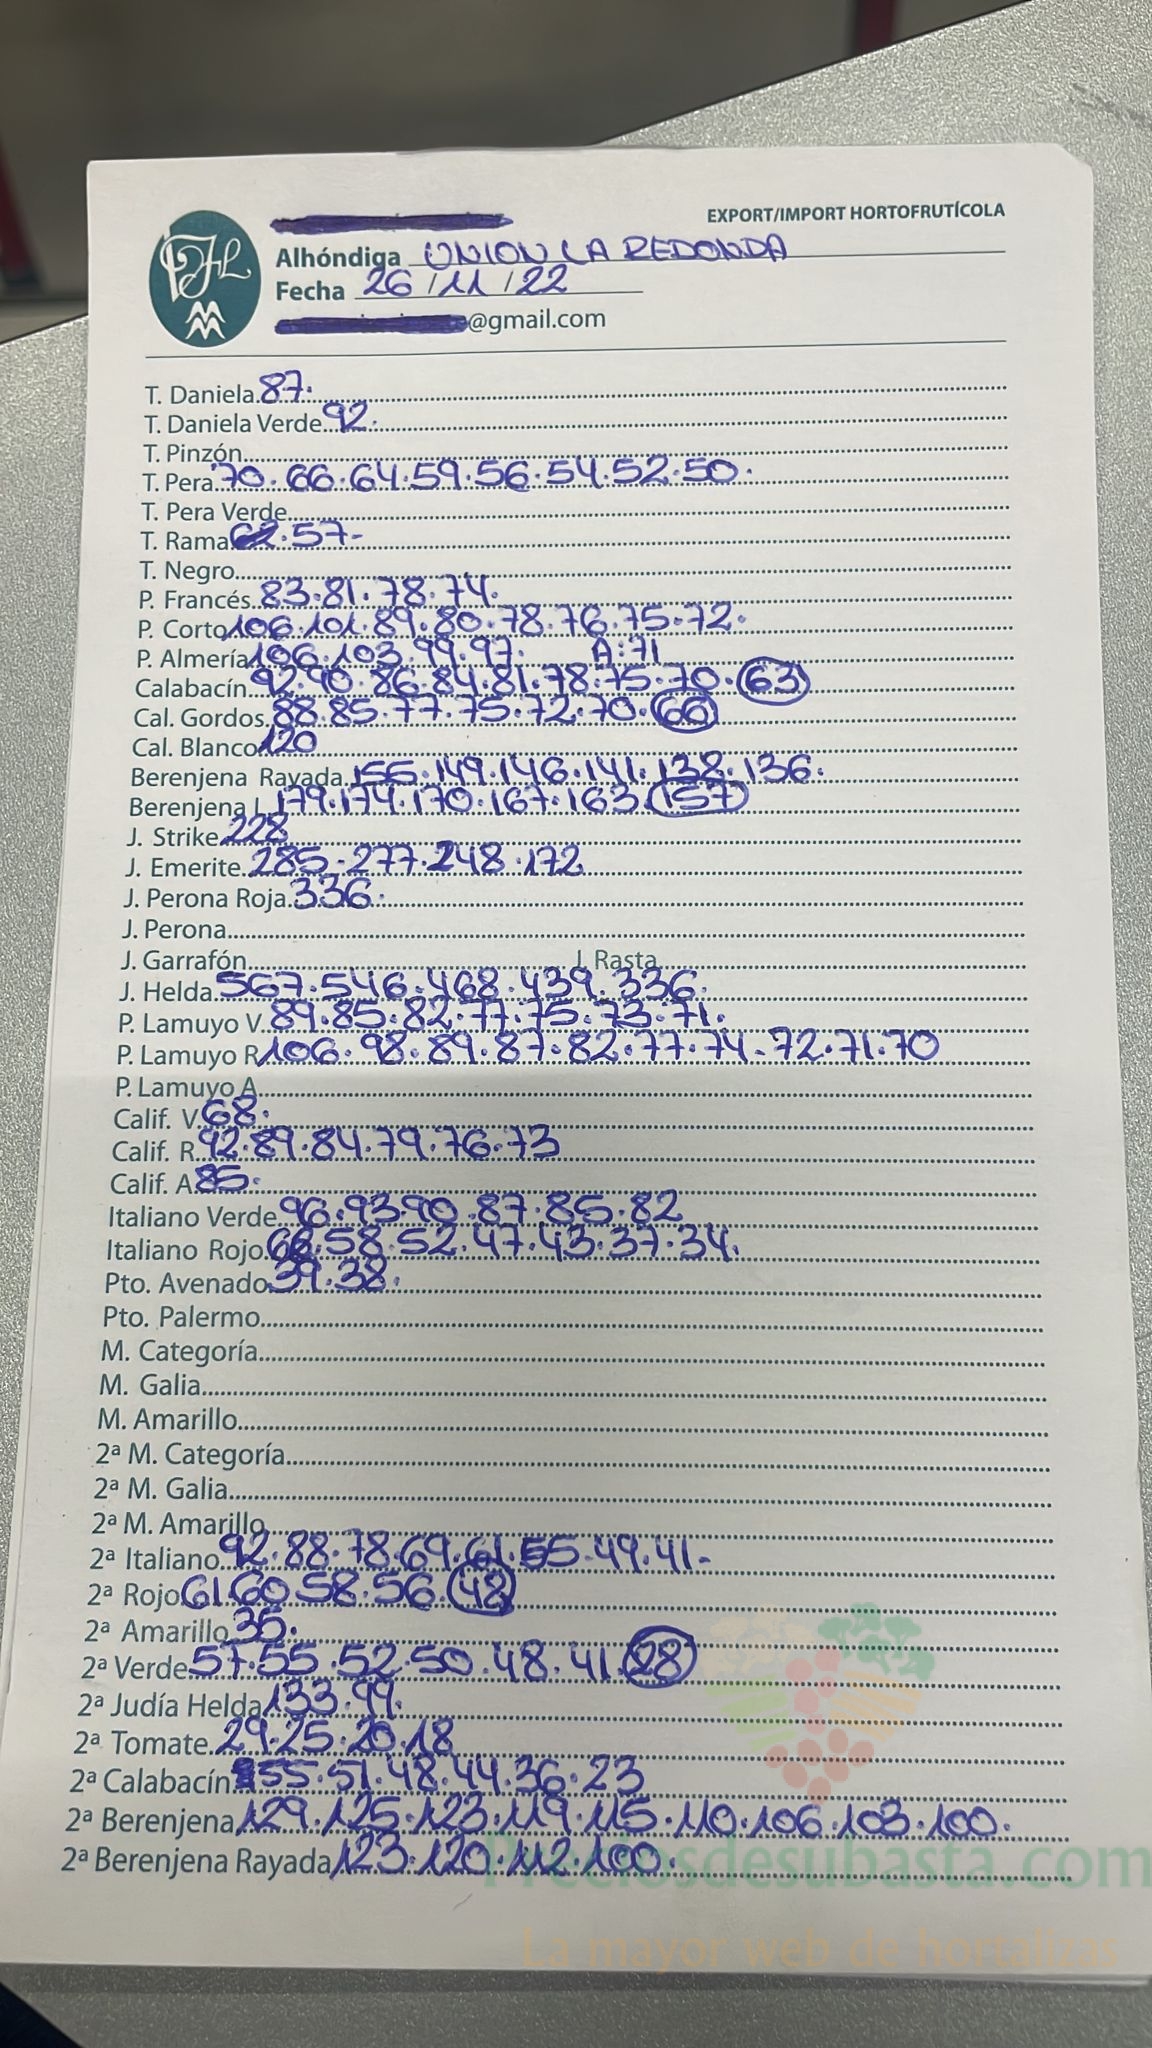 EXPORT/IMPORT HORTOFRUTÍCOLA
Alhóndiga UNION LA REDONDA
Fecha 26/11/22
@gmail.com
T. Daniela 87.
T. Daniela Verde 92.
T. Pinzón
T. Pera 70.66.64.59.56.54.52.50.
T. Pera Verde
T. Rama 62.57-
T. Negro
P. Francés 83.81.78.74.
P. Corto 106.101.89.80.78.76.75.72.
P. Almería 106.103.99.97. A:71
Calabacín 92.90.86.84.81.78.75.70.63
Cal. Gordos 88.85.77.75.72.70.66
Cal. Blanco 120
Berenjena Rayada 155.149.146.141.138.136.
Berenjena L 179.174.170.167.163.157
J. Strike 228
J. Emerite 285.277.248.172
J. Perona Roja 336.
J. Perona
J. Garrafón J. Rasta
J. Helda 567.546.468.439.336.
P. Lamuyo V. 89.85.82.77.75.73.71.
P. Lamuyo R 106.98.89.87.82.77.74-72.71.70
P. Lamuyo A
Calif. V. 68.
Calif. R. 92.89.84.79.76.73
Calif. A 85.
Italiano Verde 96.93.90.87.85.82
Italiano Rojo 58.52.47.43.37.34.
Pto. Avenado 39.38.
Pto. Palermo
M. Categoría
M. Galia
M. Amarillo
2ª M. Categoría
2ª M. Galia
2ª M. Amarillo
2ª Italiano 92.88.78.69.61.55.49.41-
2ª Rojo 61.60.58.56.42
2ª Amarillo 35.
2ª Verde 57.55.52.50.48.41.28
2ª Judía Helda 133.99.
2ª Tomate 29.25.20.18
2ª Calabacín 55.51.48.44.36.23
2ª Berenjena 129.125.123.119.115.110.106.103.100.
2ª Berenjena Rayada 123.120.112.100.
Preciosdesubasta.com
La mayor web de hortalizas